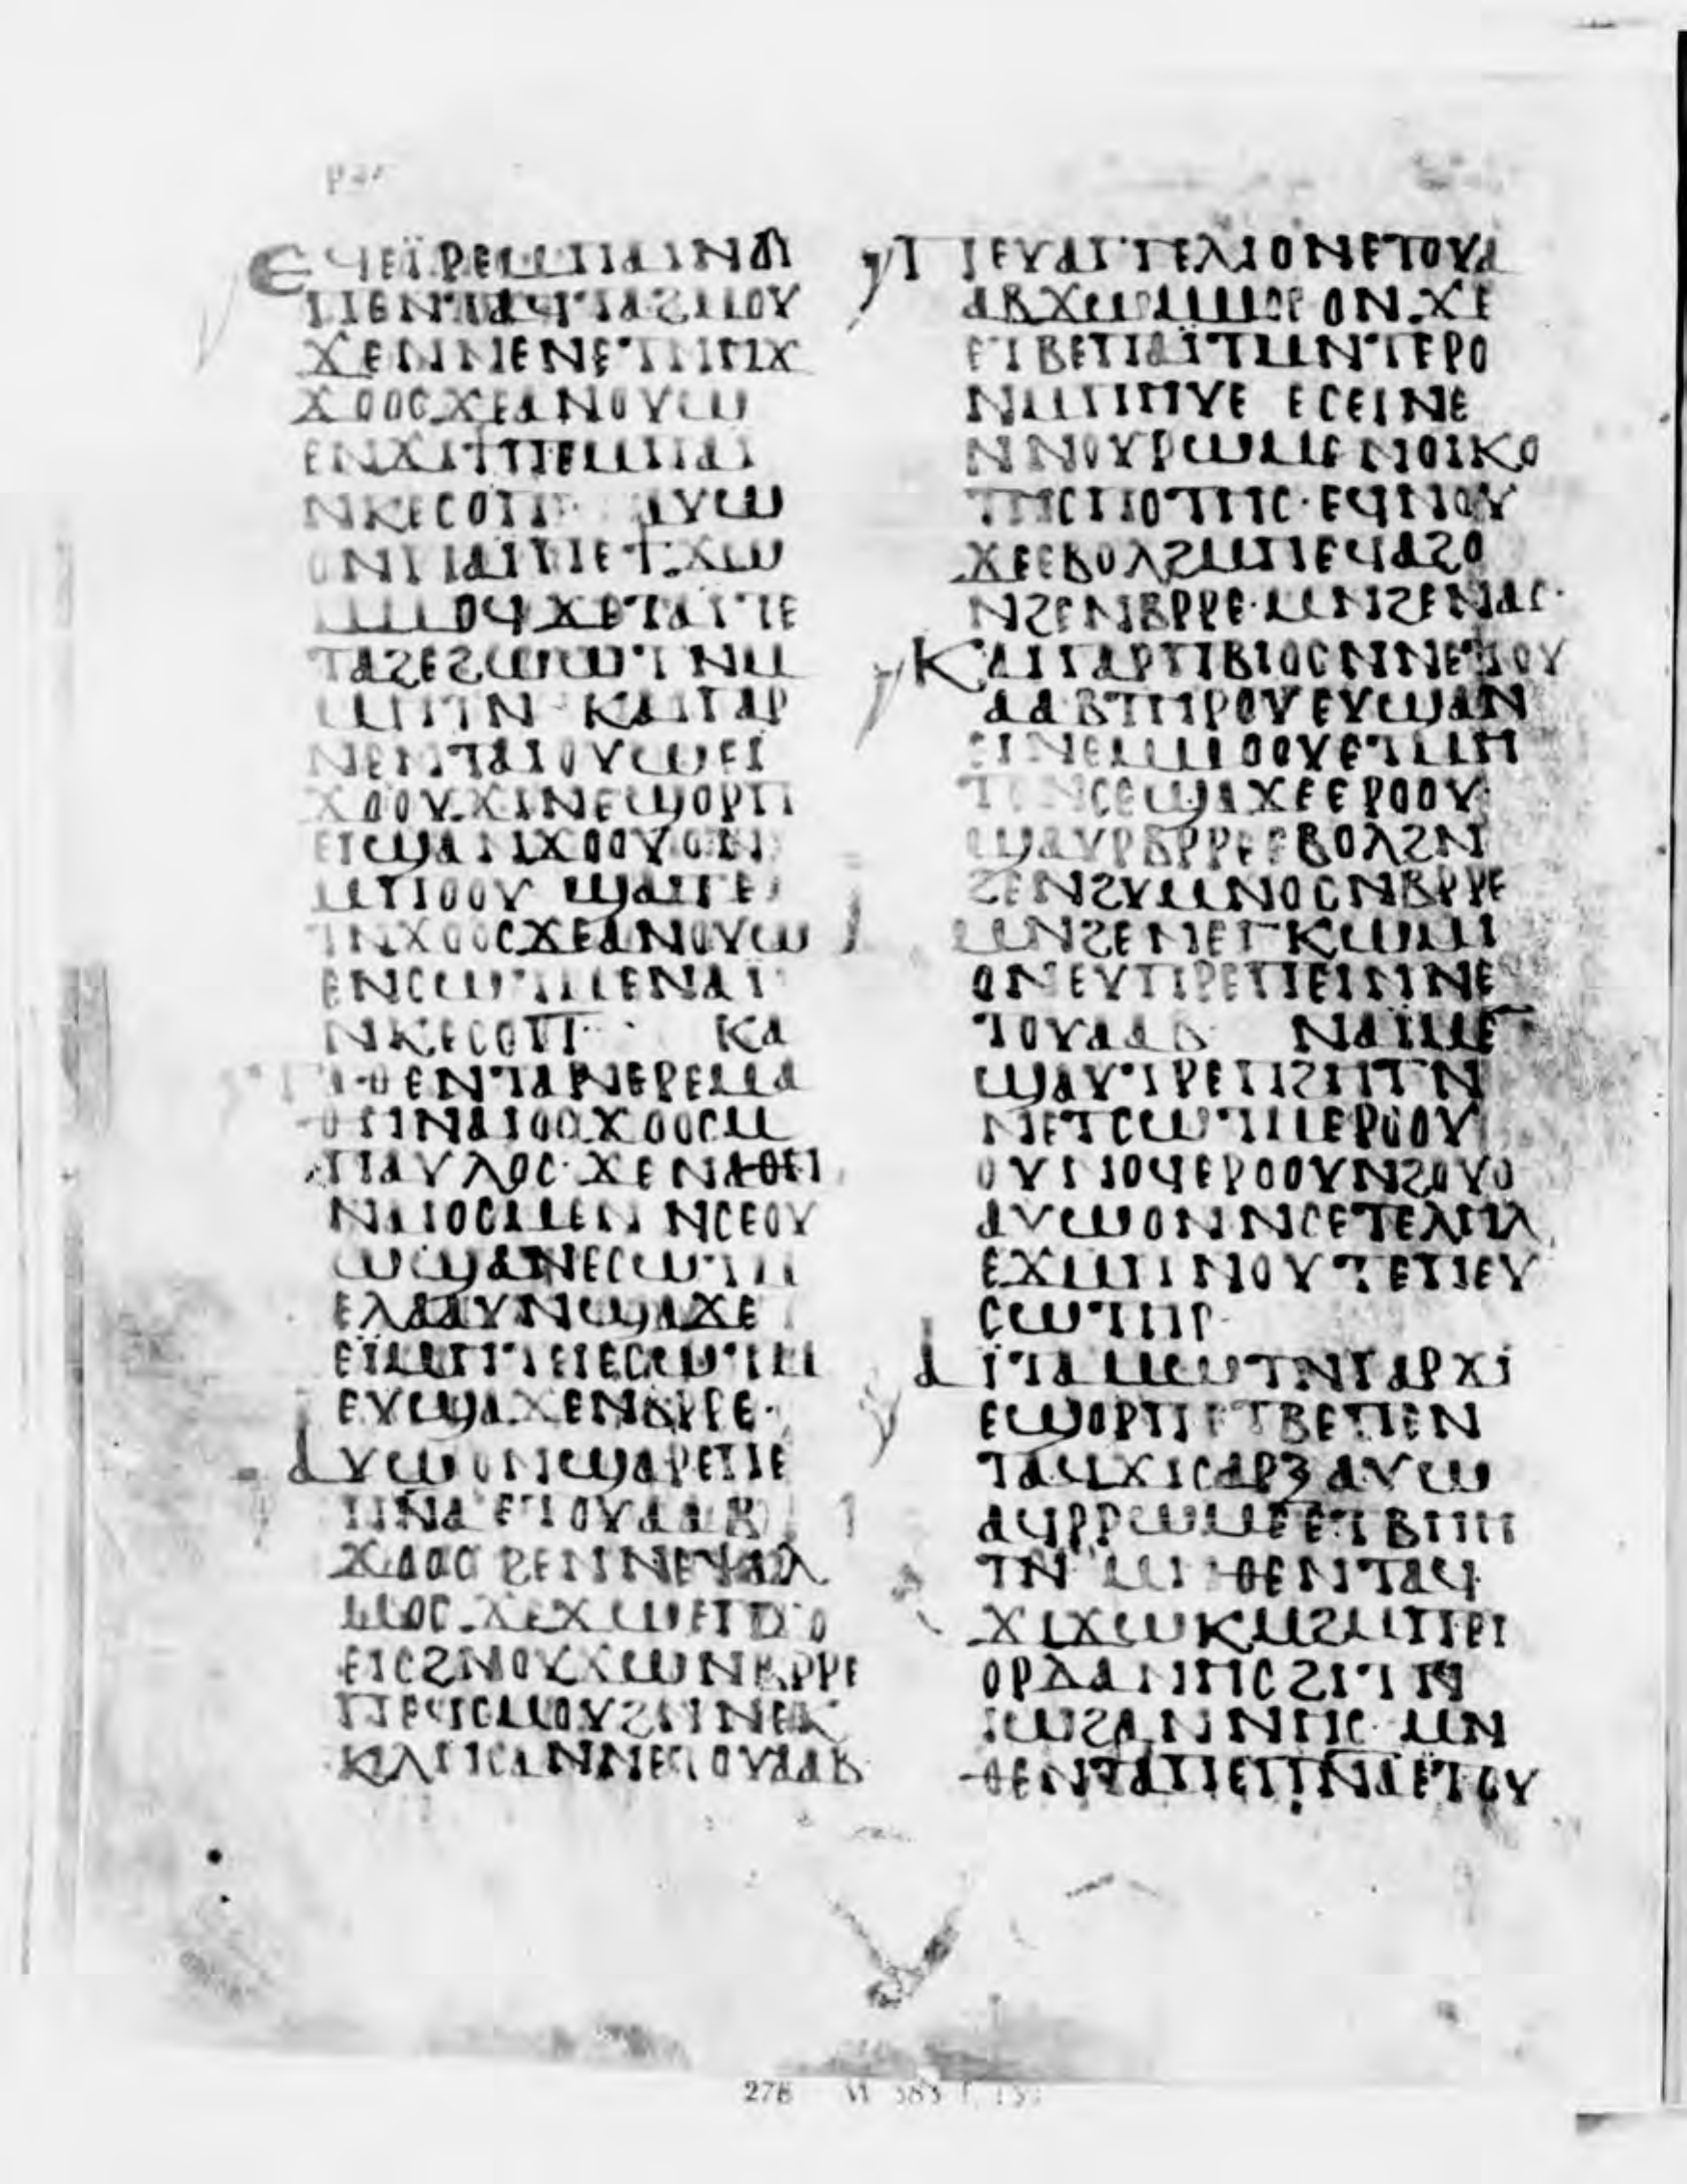 ⲉϥⲉⲓⲣⲉⲙⲡⲁⲓⲛⲁⲛ
ⲡⲉⲛⲧⲁϥⲧⲁϩⲙⲟⲩ
ϫⲉⲛⲛⲉⲛⲉⲧⲛⲏϫ
ϫⲟⲟⲥϫⲉⲁⲛⲟⲩⲱ
ⲉⲛϫⲓϯⲡⲉⲙⲡⲁⲓ
ⲛⲕⲉⲥⲟⲡ ⲁⲩⲱ
ϫⲱ
ⲙⲙⲟϥϫⲉⲧⲁⲓⲧⲉ
ⲧⲁϩⲉϩⲱⲱⲧ ⲛⲙ
ⲙⲏⲧⲛ ⲕⲁⲓⲅⲁⲣ
ⲛⲉⲛⲧⲁⲓⲟⲩⲱⲉⲓ
ϫⲟⲟⲩϫⲓⲛⲉϣⲟⲣⲡ
ⲉⲓϣⲁⲛϫⲟⲟⲩⲟⲛ
ⲙⲡⲟⲟⲩ ϣⲁⲛⲧⲉ
ⲧⲛϫⲟⲟⲥϫⲉⲁⲛⲟⲩⲱ
ⲉⲛⲥⲱⲧⲙⲉⲛⲁⲓ
ⲛⲕⲉⲥⲟⲡ ⲕⲁ
ⲧⲁⲑⲉⲛⲧⲁⲛⲉⲣⲉⲙⲁ
ⲑⲏⲛⲁⲓⲟⲥϫⲟⲟⲥⲙ
ⲡⲁⲩⲗⲟⲥ ϫⲉⲛⲁⲑⲏ
ⲛⲁⲓⲟⲥⲙⲉⲛ ⲛⲥⲉⲟⲩ
ⲱϣⲁⲛⲉⲥⲱⲧⲙ
ⲉⲗⲁⲁⲩⲛϣⲁϫⲉ
ⲉⲓⲙⲏⲧⲓⲉⲥⲱⲧⲙ
ⲉⲩϣⲁϫⲉⲛⲃⲣⲣⲉ·
ⲁⲩⲱⲟⲛϣⲁⲣⲉⲡⲉ
ⲡⲛⲁ ⲉⲧⲟⲩⲁⲁⲃ
ϫⲟⲟⲥ ϩⲉⲛⲛⲉⲯⲁⲗ
ⲙⲟⲥ ϫⲉϫⲱⲉⲡϫⲟ
ⲉⲓⲥϩⲛⲟⲩϫⲱⲛⲃⲣⲣⲉ
ⲡⲉϥⲥⲙⲟⲩϩⲛⲛⲉⲕ
ⲕⲗⲏⲥⲓⲁⲛⲛⲉⲧⲟⲩⲁⲁⲃ
ⲡⲉⲩⲁⲅⲅⲉⲗⲓⲟⲛⲉⲧⲟⲩⲁ
ⲁⲃϫⲱⲙⲙⲟⲥ ⲟⲛ ϫⲉ
ⲉⲧⲃⲉⲡⲁⲓⲧⲙⲛⲧⲉⲣⲟ
ⲛⲙⲡⲏⲩⲉ ⲉⲥⲉⲓⲛⲉ
ⲛⲛⲟⲩⲣⲱⲙⲉⲛⲟⲓⲕⲟ
ⲇⲉⲥⲡⲟⲧⲏⲥ·ⲉϥⲛⲟⲩ
ϫⲉⲉⲃⲟⲗϩⲙⲡⲉϥⲁϩⲟ
ⲛϩⲉⲛⲃⲣⲣⲉ·ⲙⲛϩⲉⲛⲁⲥ·
ⲕⲁⲓⲅⲁⲣⲡⲃⲓⲟⲥⲛⲛⲉⲧⲟⲩ
ⲁⲁⲃⲧⲏⲣⲟⲩⲉⲩϣⲁⲛ
ⲉⲓⲛⲉⲙⲙⲟⲟⲩⲉⲧⲙⲏ
ⲧⲉⲛⲥⲉϣⲁϫⲉⲉⲣⲟⲟⲩ
ϣⲁⲩⲣⲃⲣⲣⲉⲉⲃⲟⲗϩⲛ
ϩⲉⲛϩⲩⲙⲛⲟⲥⲛⲃⲣⲣⲉ
ⲙⲛϩⲉⲛⲉⲅⲕⲱⲙⲓ
ⲟⲛⲉⲩⲡⲣⲉⲡⲉⲓⲛⲛⲉ
ⲧⲟⲩⲁⲁⲃ ⲛⲁⲓⲙⲉ
ϣⲁⲩⲧⲣⲉⲡϩⲏⲧⲛ
ⲛⲉⲧⲥⲱⲧⲙⲉⲣⲟⲟⲩ
ⲟⲩⲛⲟϥⲉⲣⲟⲟⲩⲛϩⲟⲩⲟ
ⲁⲩⲱⲟⲛⲛⲥⲉⲧⲉⲗⲏⲗ
ⲉϫⲙⲡⲛⲟⲩⲧⲉⲡⲉⲩ
ⲥⲱⲧⲏⲣ·
ⲁⲓⲧⲁⲙⲱⲧⲛⲅⲁⲣϫⲓ
ⲉϣⲟⲣⲡⲉⲧⲃⲉⲡⲉⲛ
ⲧⲁϥϫⲓⲥⲁⲣⲝ ⲁⲩⲱ
ⲁϥⲣⲣⲱⲙⲉⲉⲧⲃⲏⲏ
ⲧⲛ ⲙⲛⲑⲉⲛⲧⲁϥ
ϫⲓϫⲱⲕⲙϩⲙⲡⲉⲓ
ⲟⲣⲇⲁⲛⲏⲥϩⲓⲧⲛ
ⲓⲱϩⲁⲛⲛⲏⲥ· ⲙⲛ
ⲑⲉⲛⲧⲁⲡⲉⲡⲛⲁⲉⲧⲟⲩ
278